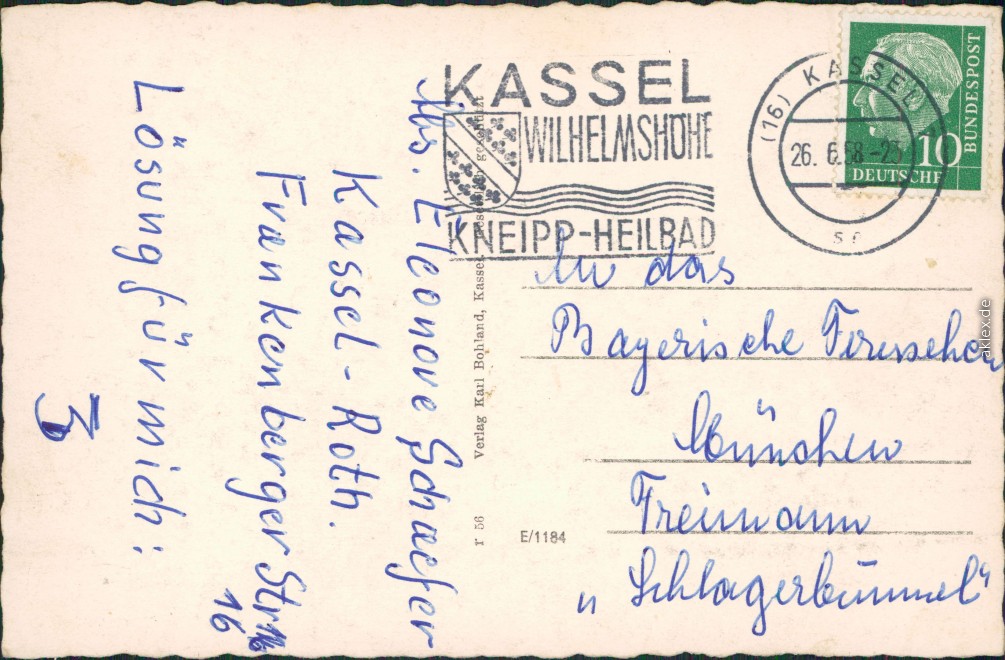 Abs. Eleonore Schaefer
Kassel - Roth.
Frankenberger Str.
16
Lösung für mich:
3
Verlag Karl Bohland, Kassel
r 56
E/1184
KASSEL
WILHELMSHÖHE
KNEIPP-HEILBAD
(16) KASSEL
26. 6.58-23
DEUTSCHE
BUNDESPOST
10
An das
Bayerische Fernsehen
München
Freimann
„Schlagerbummel“
aklex.de